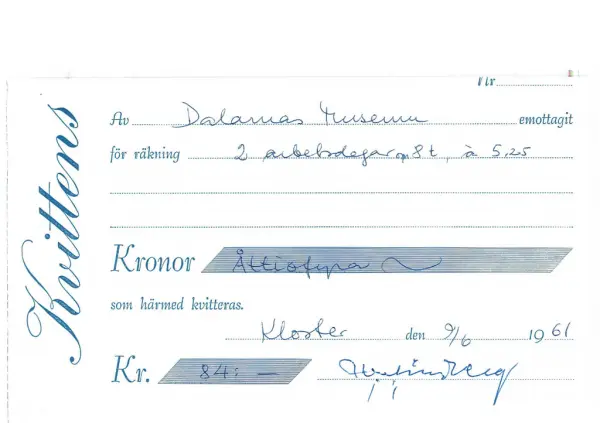 Kvittens
Nr
Av Dalarnas Museum emottagit
för räkning 2 arbetsdagar op 8 t, à 5,25
Kronor Åttiofyra
som härmed kvitteras.
Kloster den 9/6 1961
Kr. 84: —